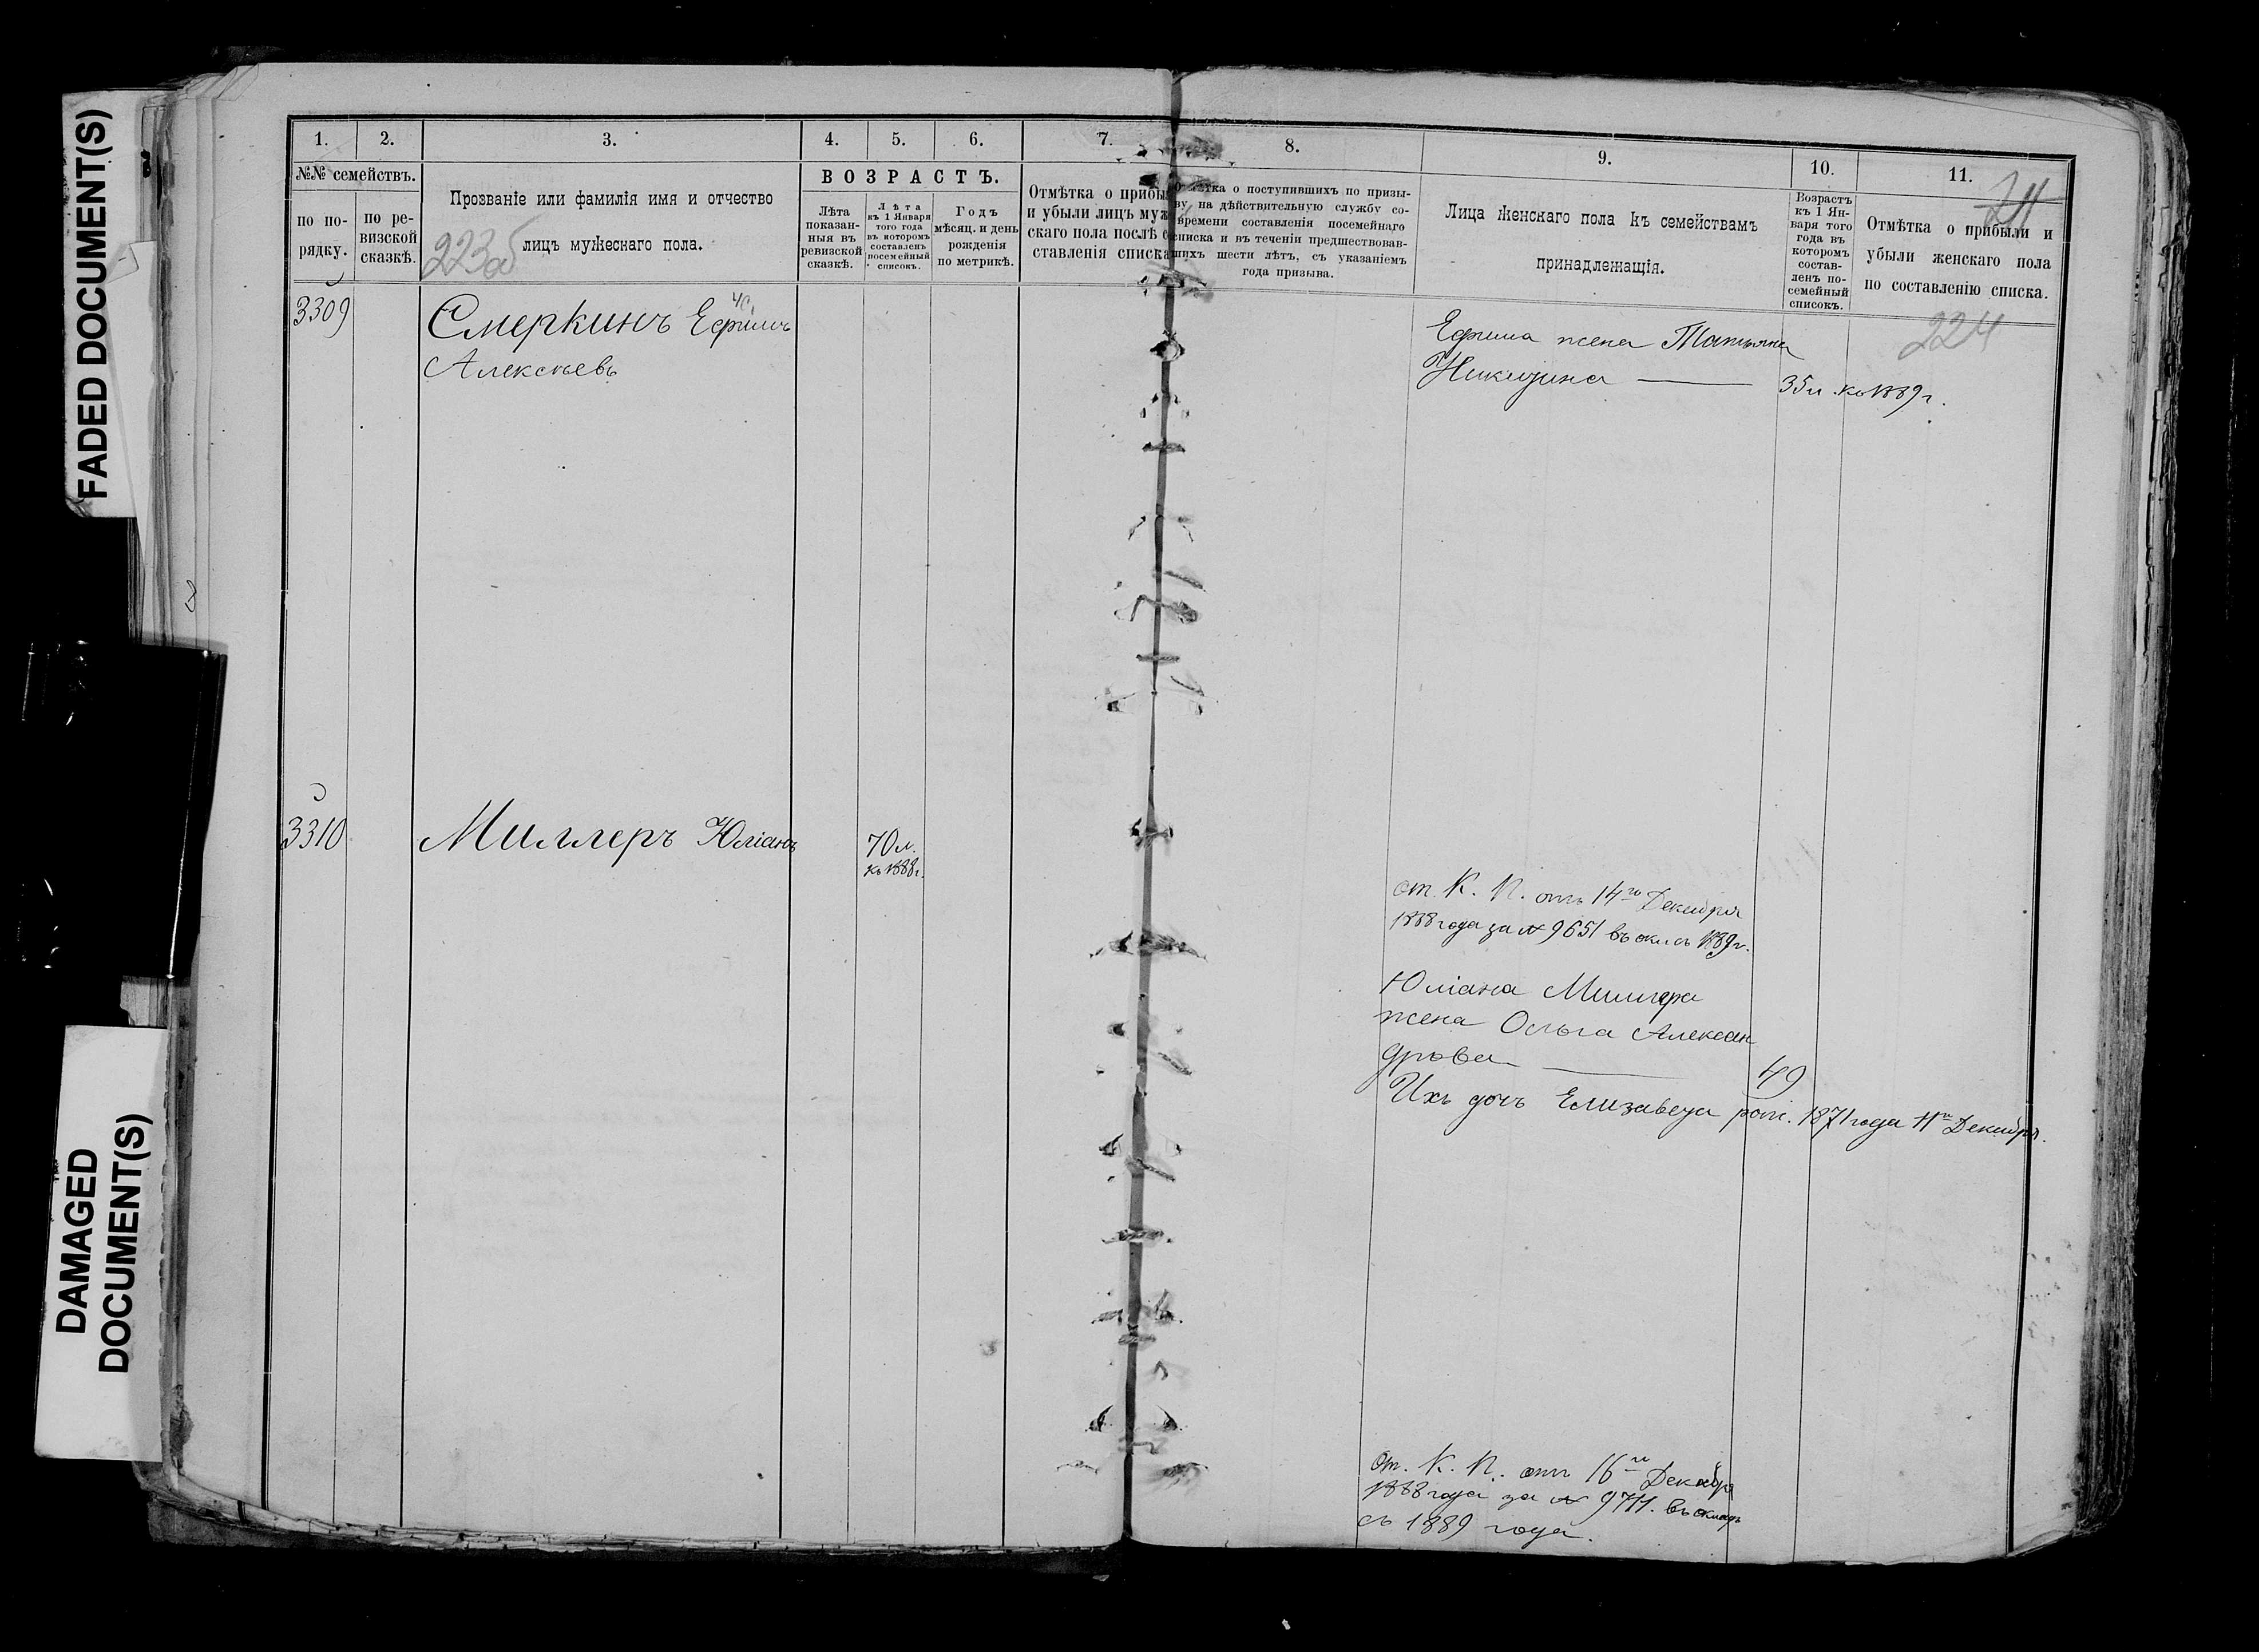 FADED DOCUMENT(S)
DAMAGED
DOCUMENT(S)
1.
2.
3.
4.
5.
6.
7.
8.
9.
10.
11.
№№ семействъ.
по по-
рядку.
по ре-
визской
сказкѣ.
Прозваніе или фамилія имя и отчество
лицъ мужескаго пола.
223об
ВОЗРАСТЪ.
Лѣта
показан-
ныя въ
ревизской
сказкѣ.
Лѣта
къ 1 Января
того года
въ которомъ
составленъ
посемейный
списокъ.
Годъ
мѣсяц. и день
рожденія
по метрикѣ.
Отмѣтка о прибы
и убыли лицъ муж
скаго пола послѣ с
ставленія списка
Отмѣтка о поступившихъ по призы-
ву на дѣйствительную службу со-
времени составленія посемейнаго
списка и въ теченіи предшествовав-
шихъ шести лѣтъ, съ указаніемъ
года призыва.
Лица женскаго пола къ семействамъ
принадлежащія.
Возрастъ
къ 1 Ян-
варя того
года въ
которомъ
состав-
ленъ по-
семейный
списокъ.
Отмѣтка о прибыли и
убыли женскаго пола
по составленію списка.
224
3309
Смеркинъ Ефимъ
Алексѣевъ
Ефима жена Татьяна
Никитина 35 л. къ 1889 г.
3310
Миллеръ Юліанъ
70 л.
къ 1888 г.
от. К. П. отъ 14го Декабря
1888 года за № 9651 въ окл. съ 1889 г.
Юліана Миллера
жена Ольга Алексан
дрова 49
Ихъ дочь Елизавета рож. 1871 года 11го Декабря.
От. К. П. отъ 16го Декабря
1888 года за № 9711. въ окладъ
съ 1889 года.